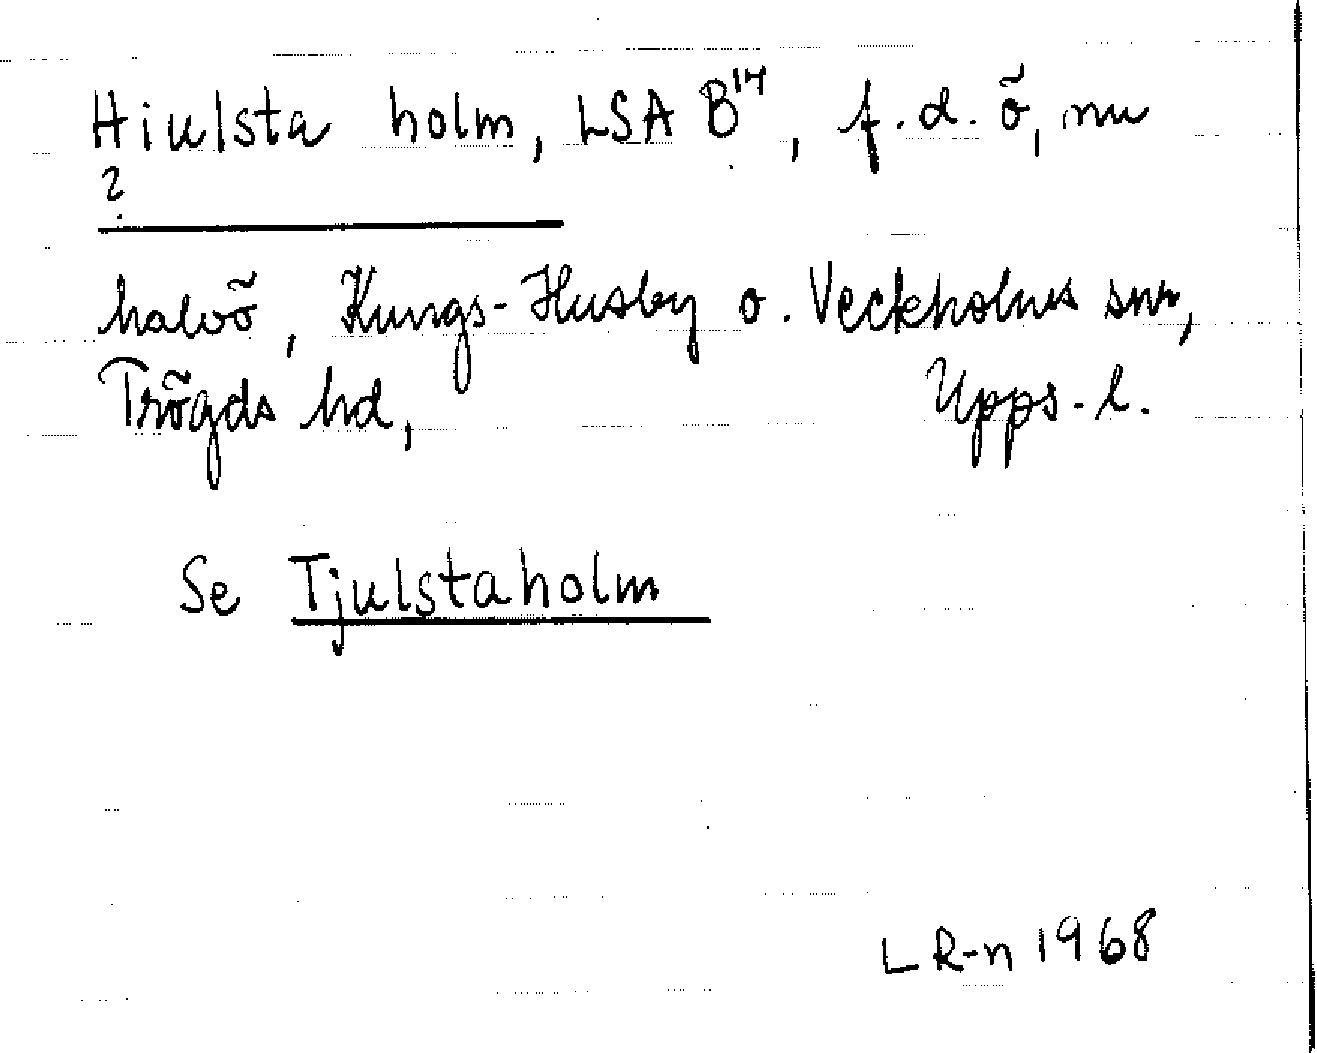 Hiulsta holm, LSA B¹⁴, f.d. ö, nu
?
halvö, Kungs-Husby o. Veckholms snr,
Trögds hd, Upps. l.
Se Tjulstaholm
L R-n 1968